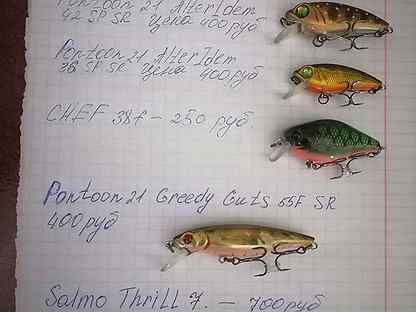 Pontoon 21 AlterIdem
42 SP SR цена 400руб
Pontoon 21 AlterIdem
36 SP SR цена 400руб
CHEF 38f - 250 руб
Pontoon 21 Greedy Guts 55F SR
400руб
Salmo Thrill 7. - 700руб